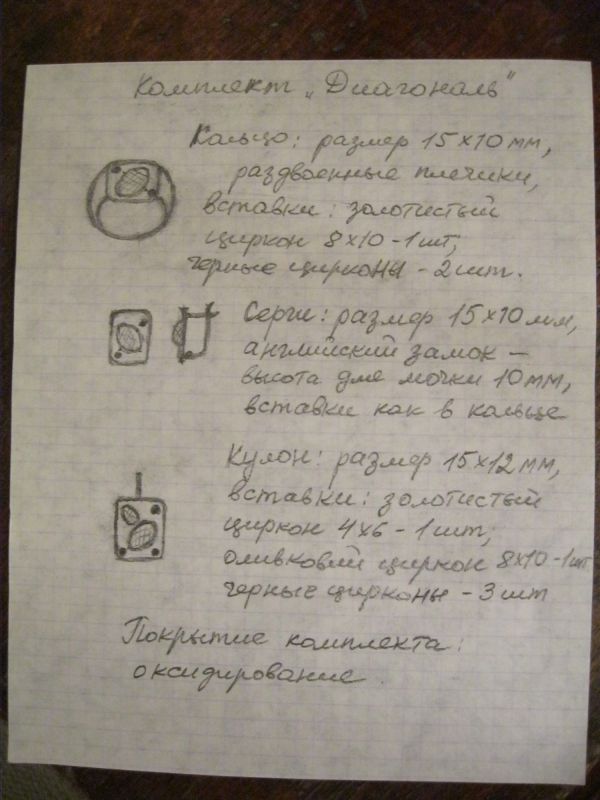 Комплект „Диагональ"
Кольцо: размер 15х10 мм,
раздвоенные плечики,
вставки: золотистый
циркон 8х10 - 1 шт,
черные цирконы - 2 шт.
Серги: размер 15х10 мм,
английский замок –
высота для мочки 10 мм,
вставки как в кольце
Кулон: размер 15х12 мм,
вставки: золотистый
циркон 4х6 - 1 шт;
оливковый циркон 8х10 - 1 шт
черные цирконы - 3 шт
Покрытие комплекта:
оксидирование.